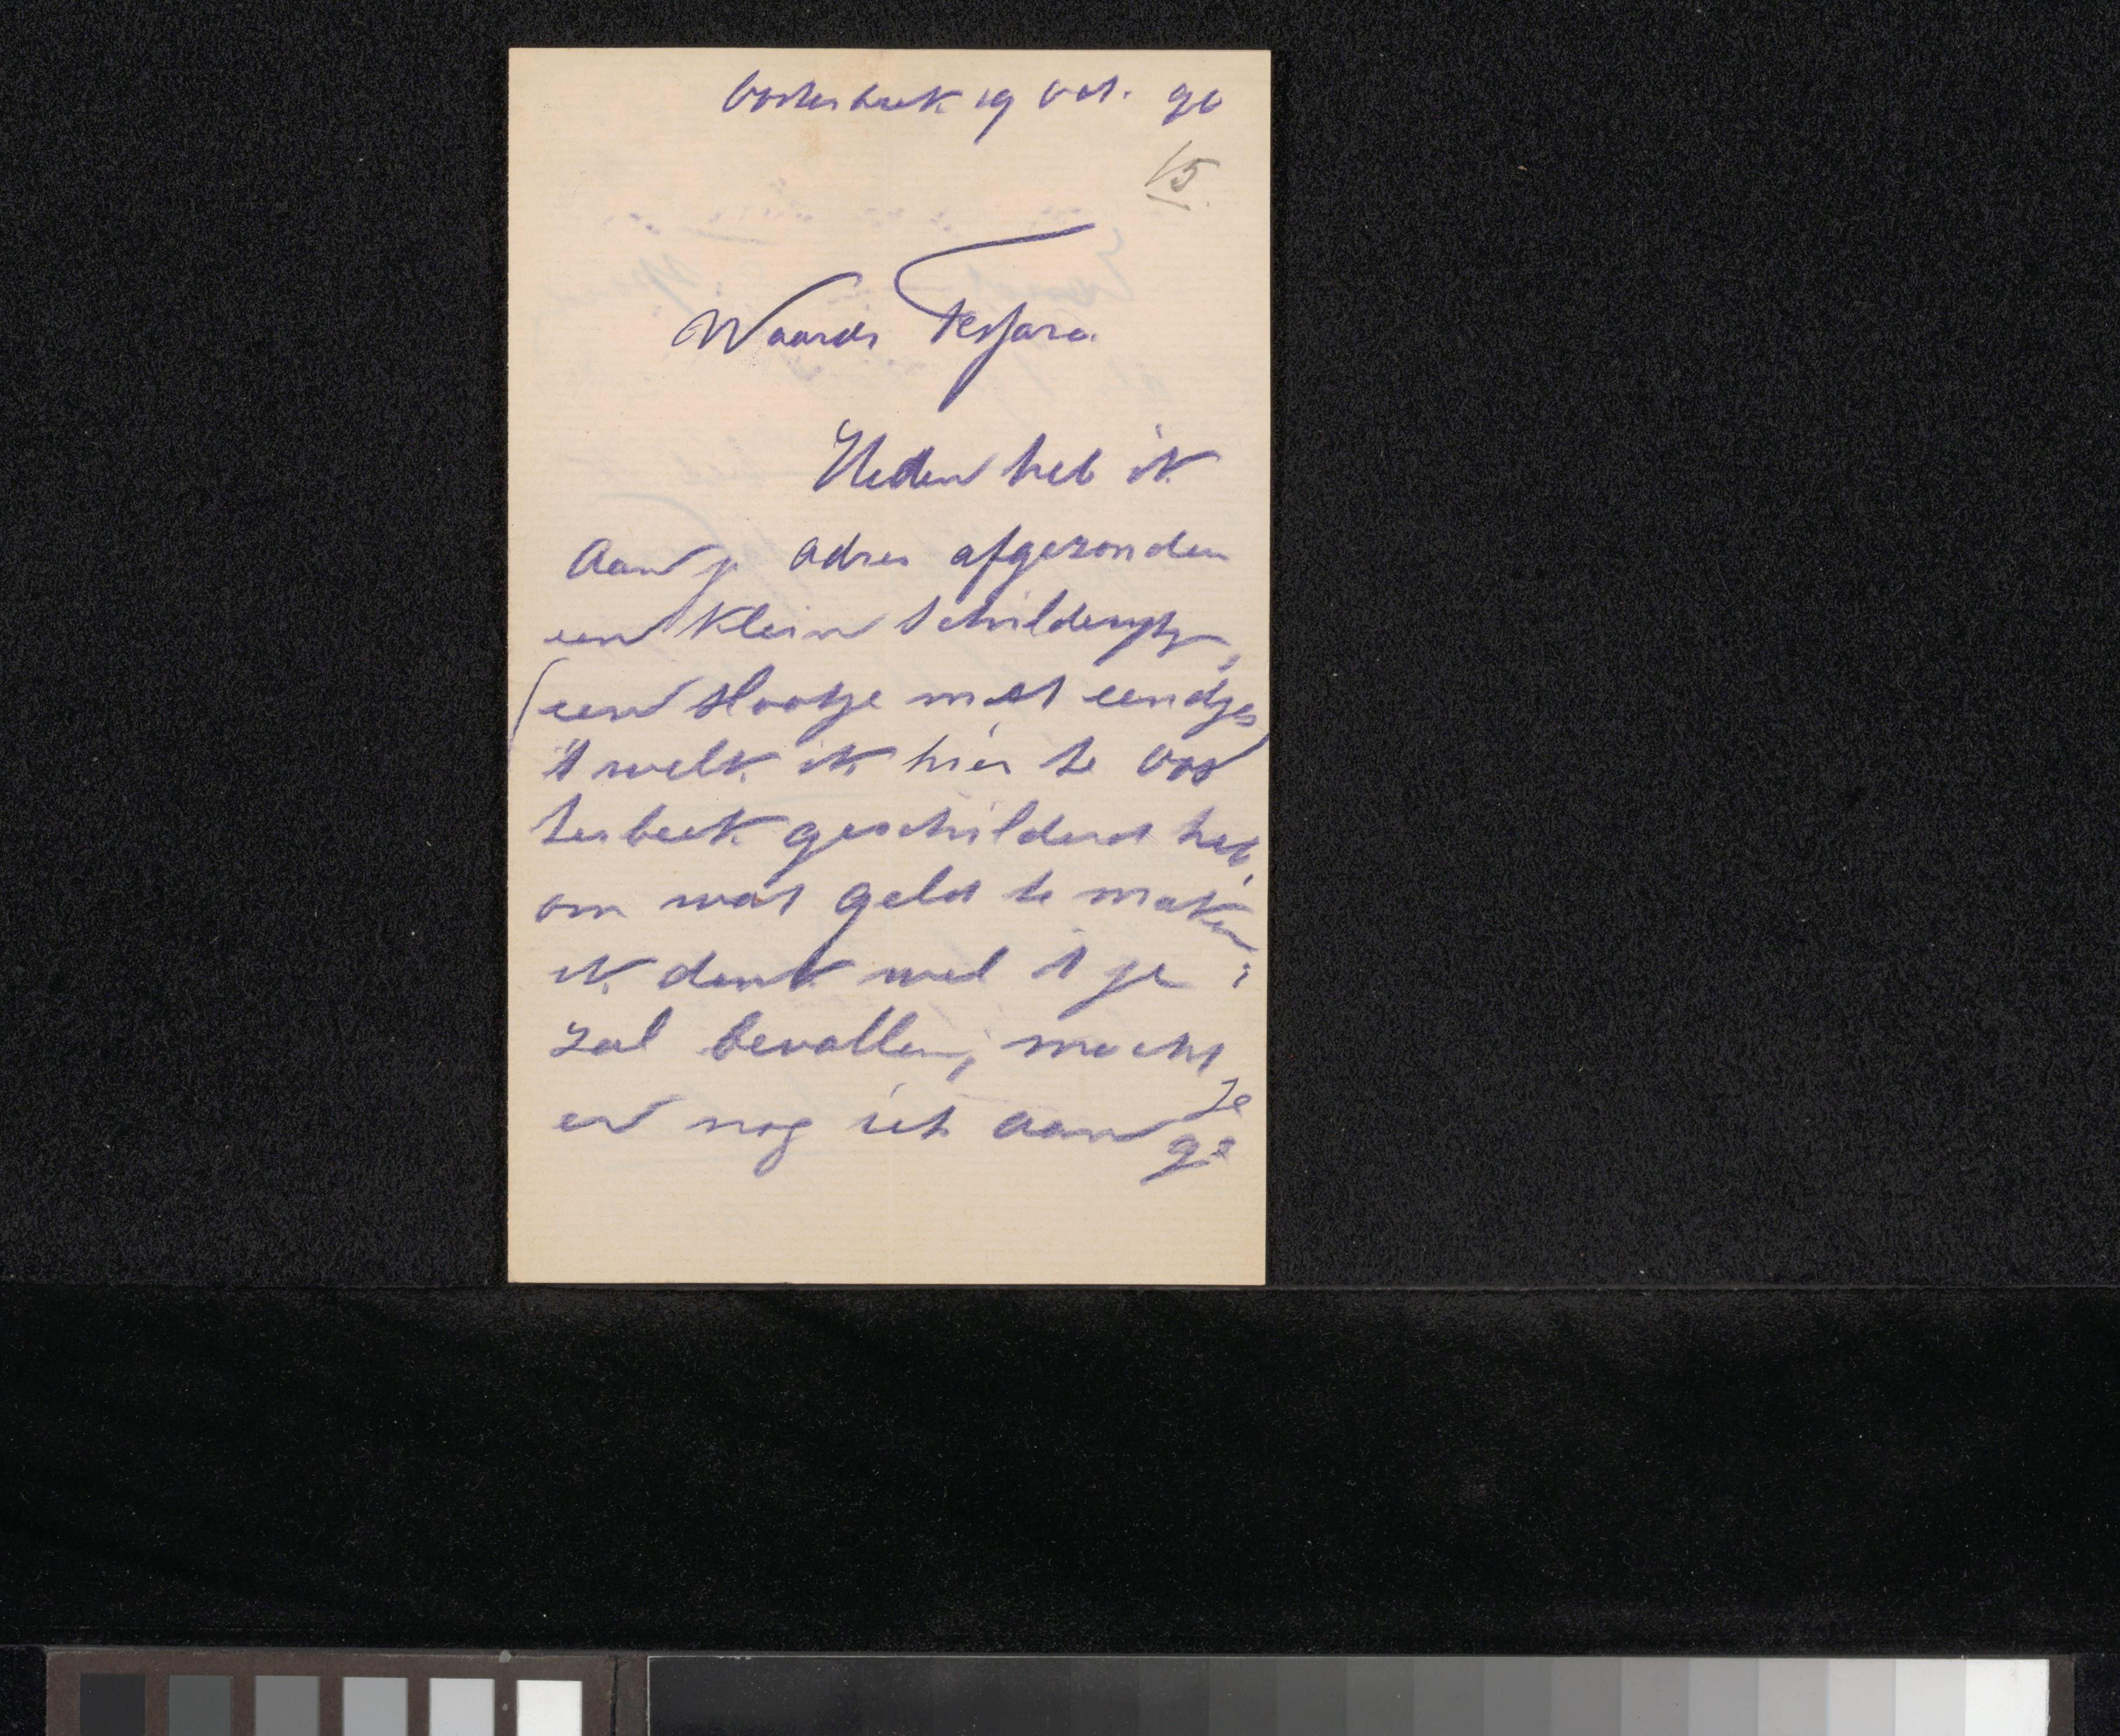 Oosterbeek 19 Oct. 90
15.
Waarde Tessaro.
Heden heb ik
aan je adres afgezonden
een klein schilderytje,
(een slootje met eendjes)
't welk ik hier te Oos
terbeek geschilderd heb,
om wat geld te maken
ik denk wel 't je
zal bevallen; mocht
er nog iets aan te
ge